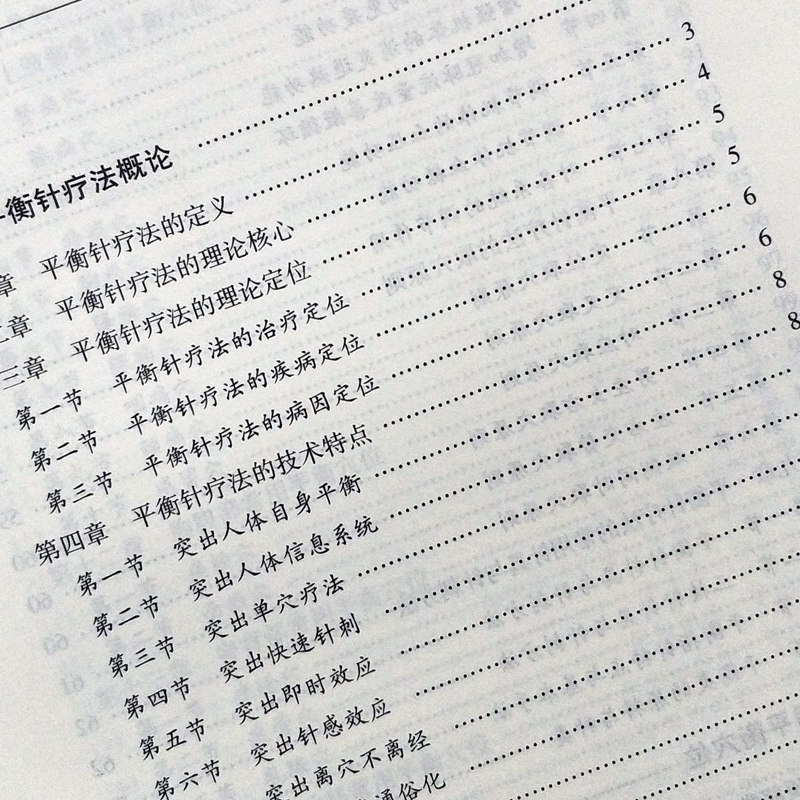 衡针疗法概论……
章 平衡针疗法的定义……3
章 平衡针疗法的理论核心……4
三章 平衡针疗法的理论定位……5
第一节 平衡针疗法的治疗定位……5
第二节 平衡针疗法的疾病定位……6
第三节 平衡针疗法的病因定位……6
第四章 平衡针疗法的技术特点……8
第一节 突出人体自身平衡……8
第二节 突出人体信息系统……
第三节 突出单穴疗法……
第四节 突出快速针刺……
第五节 突出即时效应……
第六节 突出针感效应……
突出离穴不离经……
通俗化……